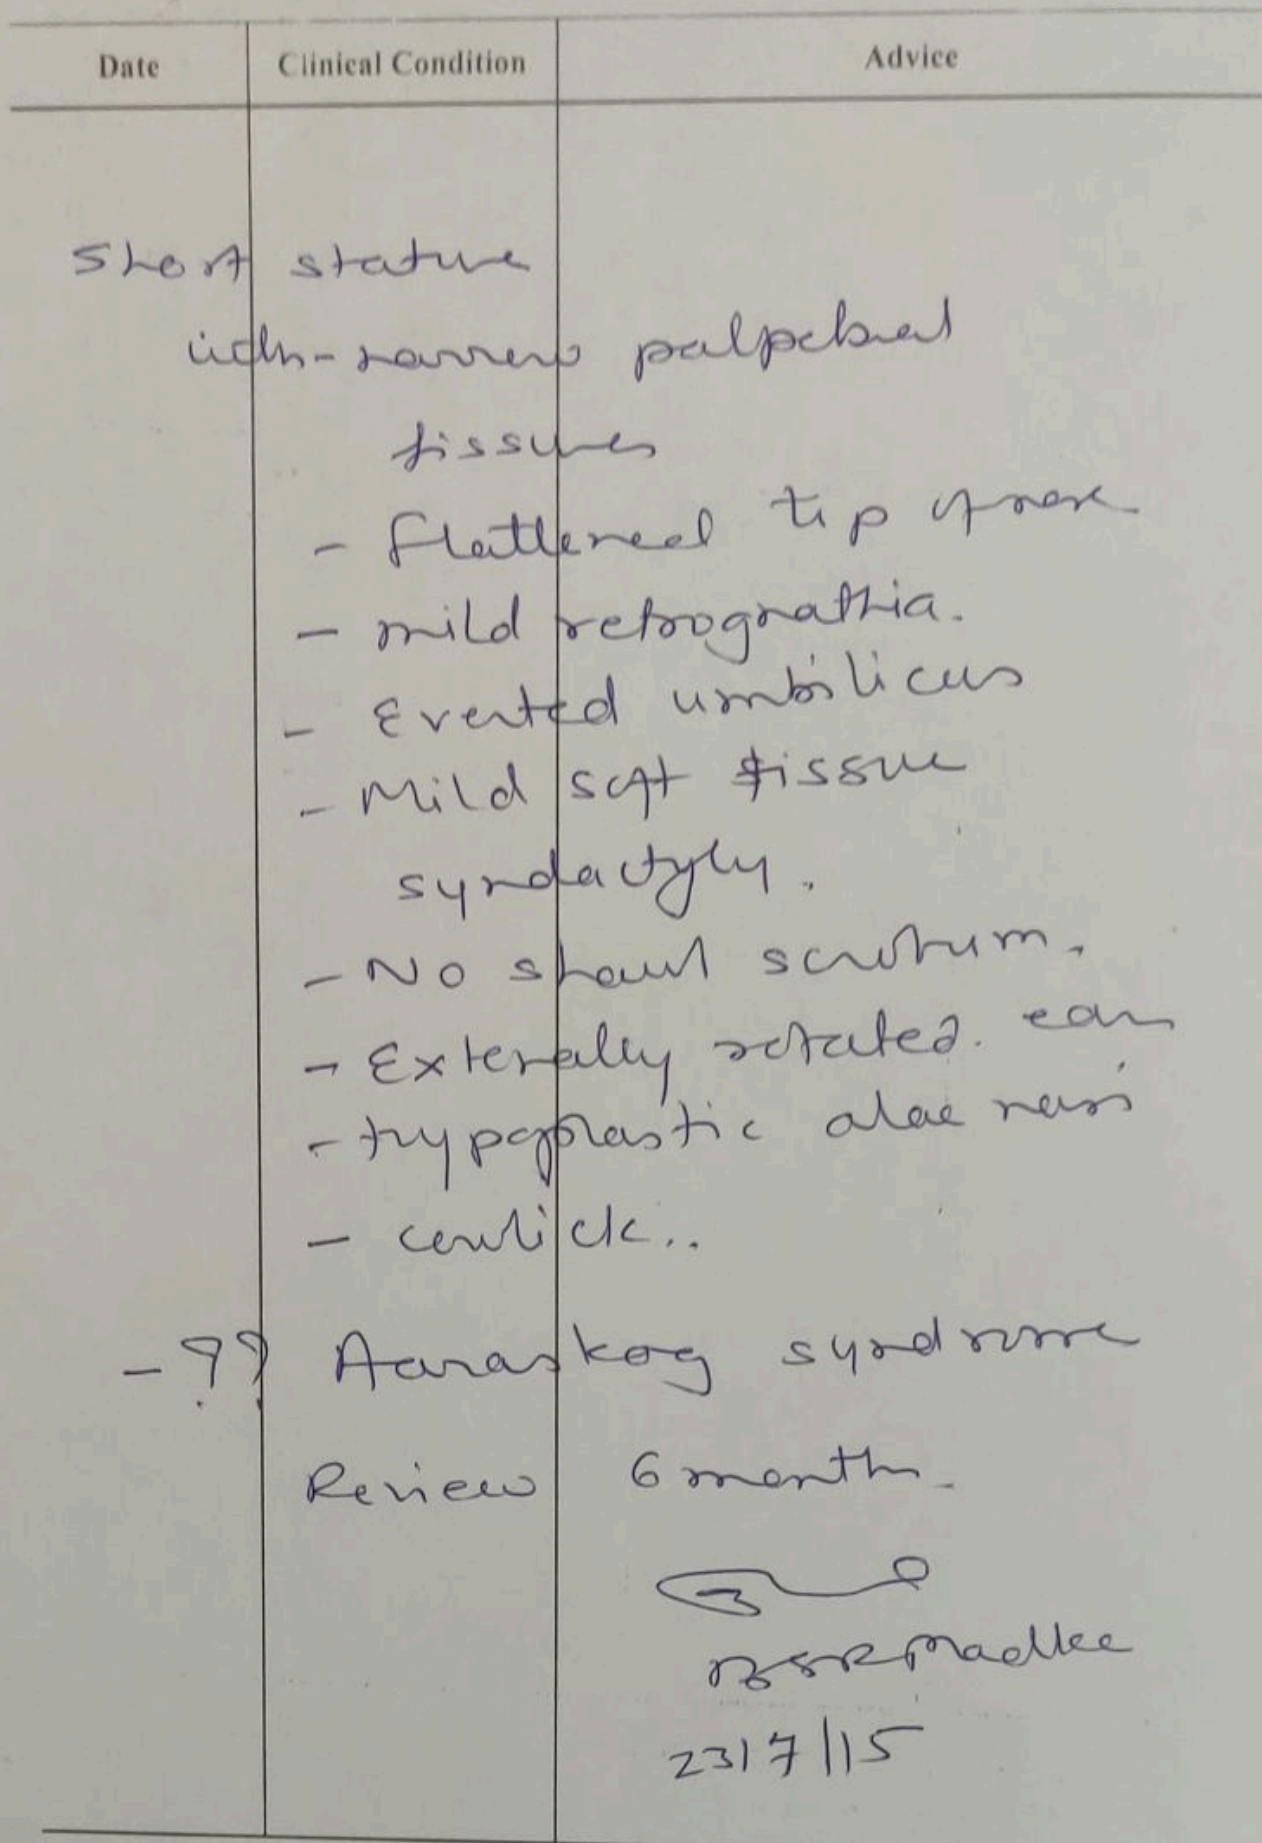 Date Clinical Condition Advice
Short stature
with - narrow palpebral
fissures
- Flattened tip of nose
- mild retrognathia.
- Everted umbilicus
- Mild soft tissue
syndactyly.
- No shawl scrotum.
- Externally rotated. ears
- Hypoplastic alae nasi
- cowlick..
- ?? Aaraskog syndrome
Review 6 months.
23/7/15